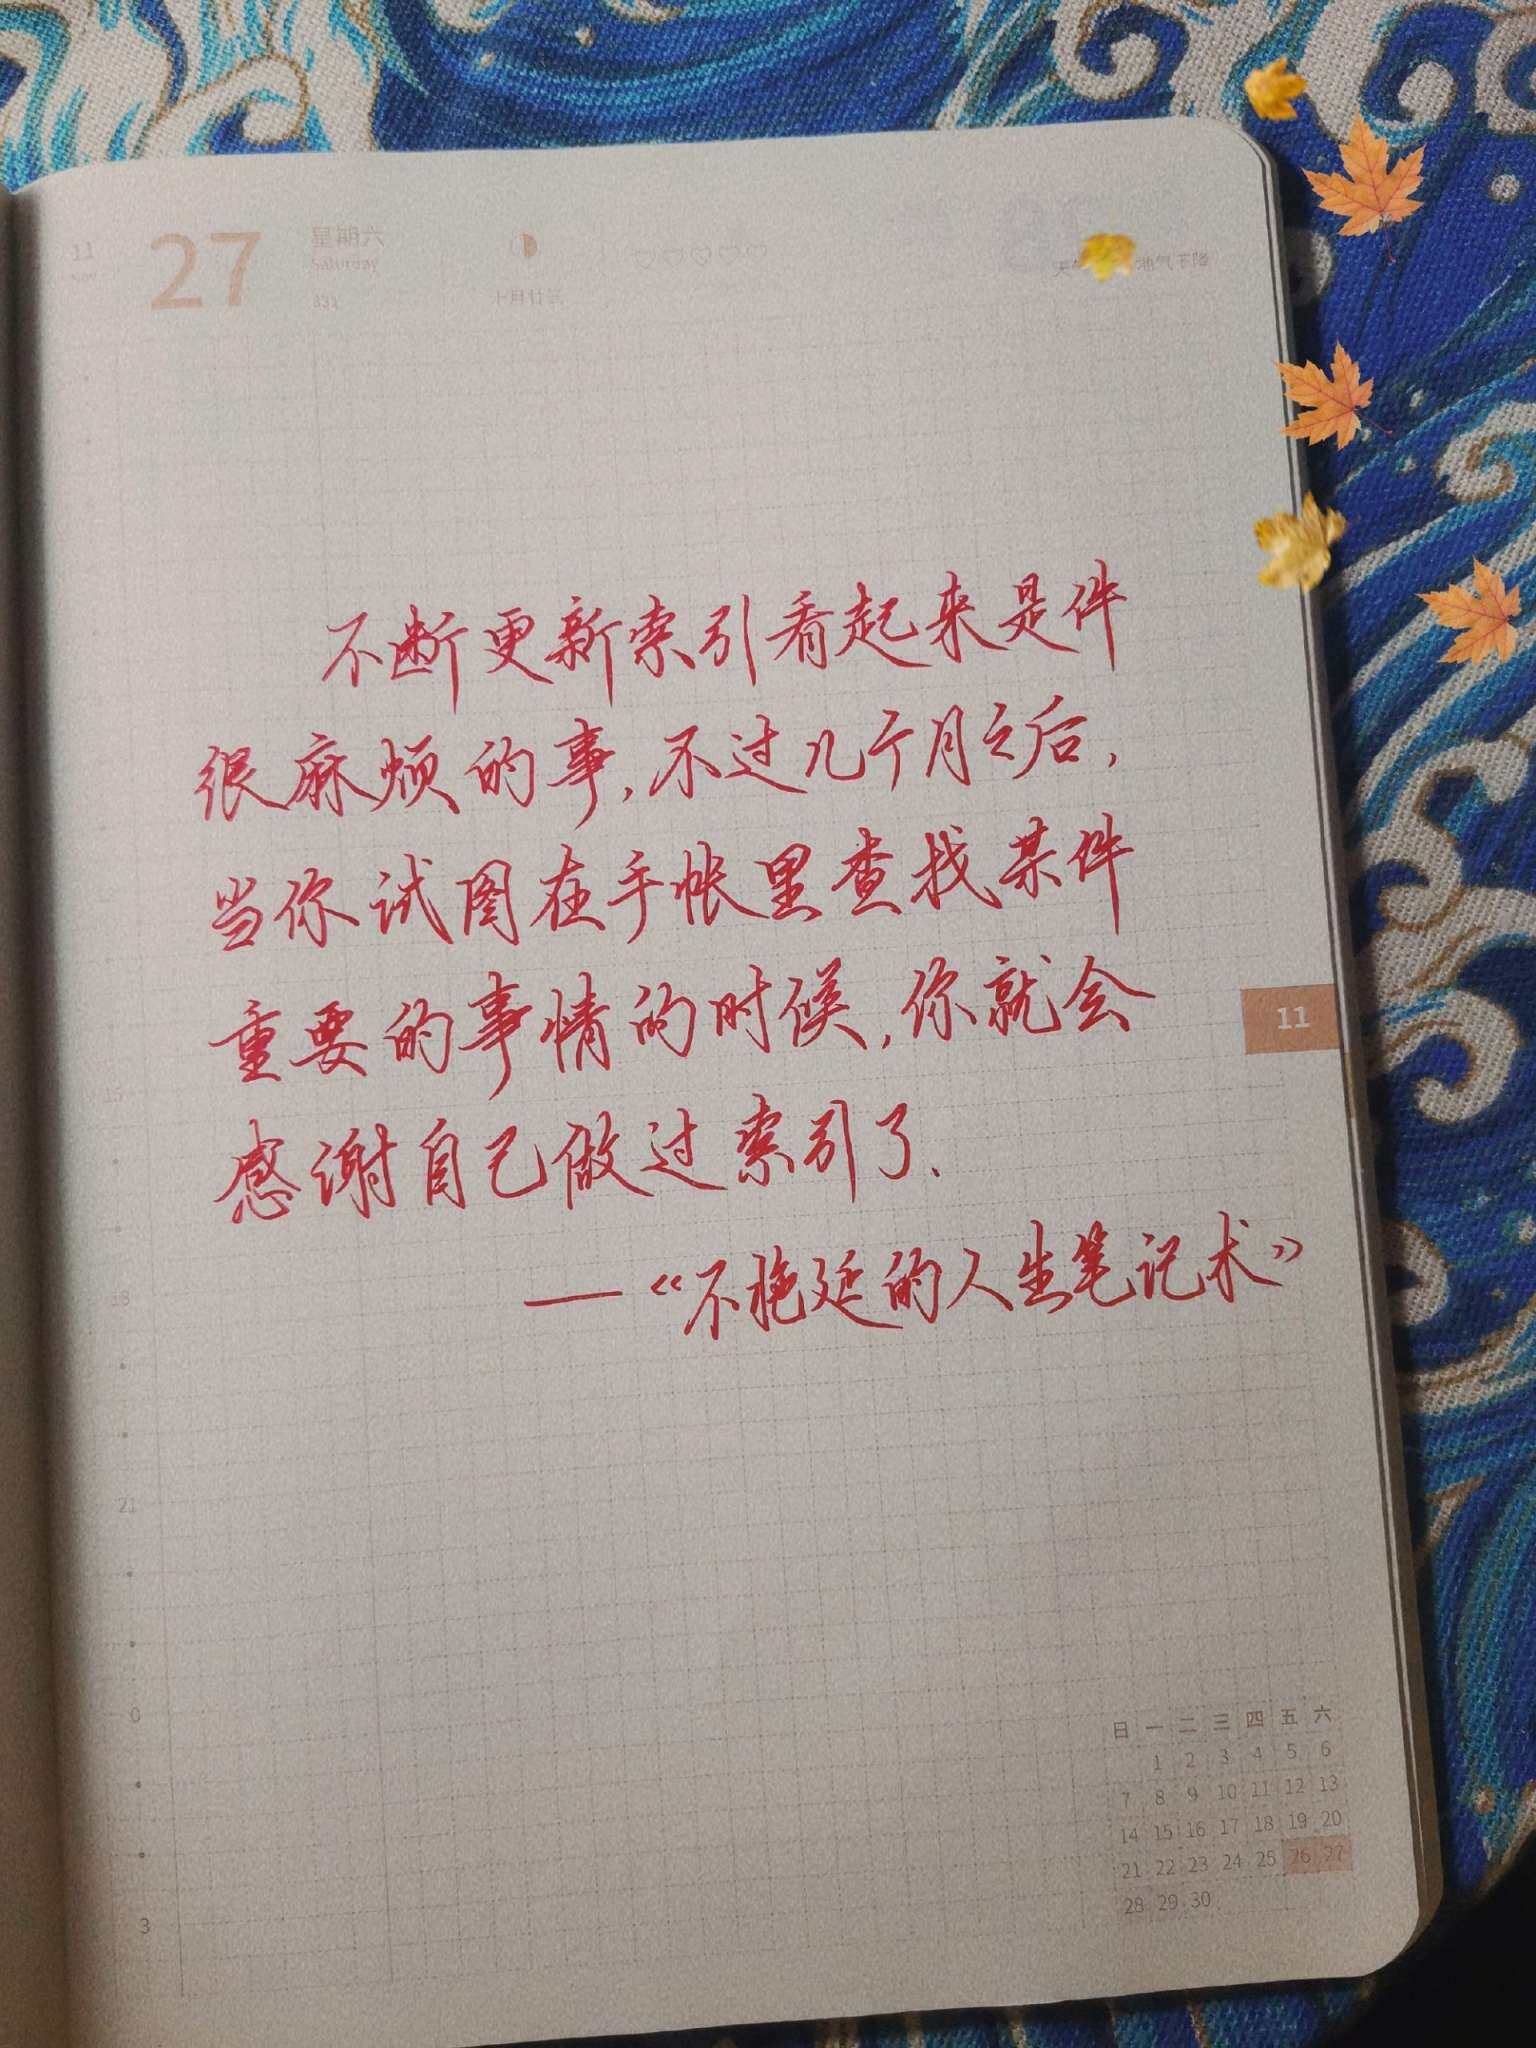 11
27
星期六
Saturday
331
十月廿三
不断更新索引看起来是件
很麻烦的事,不过几个月之后,
当你试图在手帐里查找某件
重要的事情的时候,你就会
感谢自己做过索引了.
—《不拖延的人生笔记术》
11
18
21
0
3
日 一 二 三 四 五 六
1 2 3 4 5 6
7 8 9 10 11 12 13
14 15 16 17 18 19 20
21 22 23 24 25 26 27
28 29 30